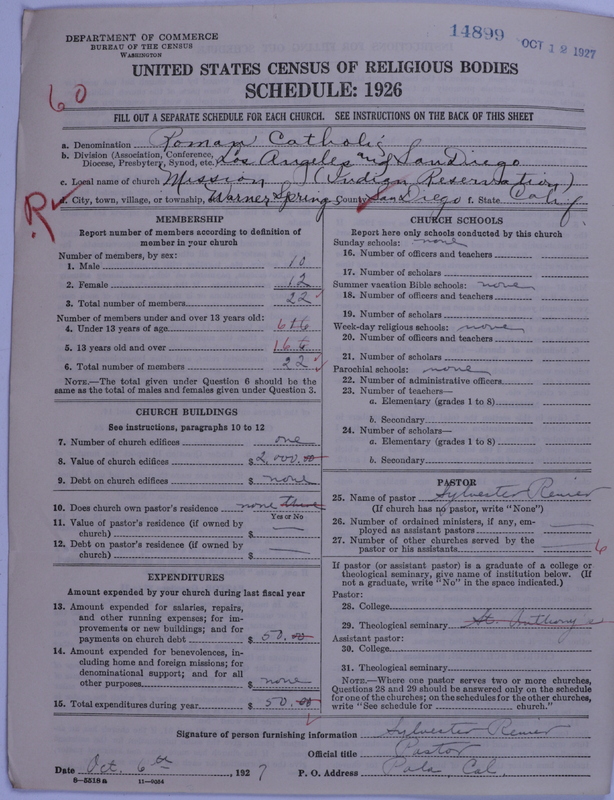 14899
OCT 12 1927
DEPARTMENT OF COMMERCE
BUREAU OF THE CENSUS
WASHINGTON
UNITED STATES CENSUS OF RELIGIOUS BODIES
SCHEDULE: 1926
60
FILL OUT A SEPARATE SCHEDULE FOR EACH CHURCH. SEE INSTRUCTIONS ON THE BACK OF THIS SHEET
a. Denomination Roman Catholic
b. Division (Association, Conference, Diocese, Presbytery, Synod, etc.) Los Angeles and San Diego
c. Local name of church Mission (Indian Reservation)
R
d. City, town, village, or township, Warner Spring County San Diego f. State Calif
MEMBERSHIP
Report number of members according to definition of
member in your church
Number of members, by sex:
1. Male 10
2. Female 12
3. Total number of members 22
Number of members under and over 13 years old:
4. Under 13 years of age 6
5. 13 years old and over 16
6. Total number of members 22
NOTE.—The total given under Question 6 should be
same as the total of males and females given under Question 3.
CHURCH BUILDINGS
See instructions, paragraphs 10 to 12
7. Number of church edifices one
8. Value of church edifices $ 2,000.00
9. Debt on church edifices $ none
10. Does church own pastor's residence none there
Yes or No
11. Value of pastor's residence (if owned by
church) $ —
12. Debt on pastor's residence (if owned by
church) $ —
EXPENDITURES
Amount expended by your church during last fiscal year
13. Amount expended for salaries, repairs,
and other running expenses; for im-
provements or new buildings; and for
payments on church debt $ 50.00
14. Amount expended for benevolences, in-
cluding home and foreign missions; for
denominational support; and for all
other purposes $ none
15. Total expenditures during year $ 50.00
CHURCH SCHOOLS
Report here only schools conducted by this church
Sunday schools: none
16. Number of officers and teachers
17. Number of scholars
Summer vacation Bible schools: none
18. Number of officers and teachers
19. Number of scholars
Week-day religious schools: none
20. Number of officers and teachers
21. Number of scholars
Parochial schools: none
22. Number of administrative officers
23. Number of teachers—
a. Elementary (grades 1 to 8)
b. Secondary
24. Number of scholars—
a. Elementary (grades 1 to 8)
b. Secondary
PASTOR
25. Name of pastor Sylvester
(If church has no pastor, write "None")
26. Number of ordained ministers, if any, em-
ployed as assistant pastors —
27. Number of other churches served by the
pastor or his assistants 6
If pastor (or assistant pastor) is a graduate of a college or
theological seminary, give name of institution below. (If
not a graduate, write "No" in the space indicated.)
Pastor:
28. College
29. Theological seminary St. Anthony's
Assistant pastor:
30. College
31. Theological seminary
NOTE.—Where one pastor serves two or more churches,
Questions 28 and 29 should be answered only on the schedule
for one of the churches; on the schedules for the other churches,
write "See schedule for church."
Signature of person furnishing information Sylvester
Official title Pastor
Date Oct. 6th, 1927 P. O. Address Pala, Cal
8—5518a 11—9054